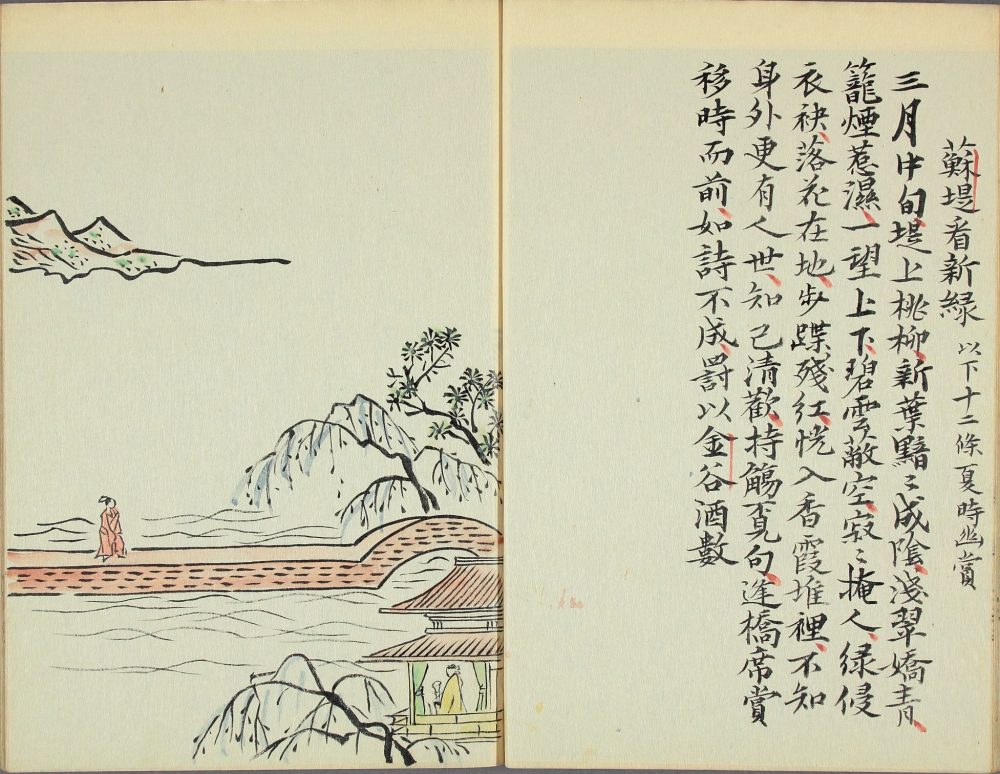 蘇堤看新緑 以下十二條夏時幽賞
三月中旬堤上桃柳新葉黯〻成陰淺翠嬌青
籠煙惹濕一望上下碧雲蔽空寂〻掩人緑侵
衣袂落花在地步蹀殘紅恍入香霞堆裡不知
身外更有人世知己清歡持觴覓句逢橋席賞
移時而前如詩不成罰以金谷酒數